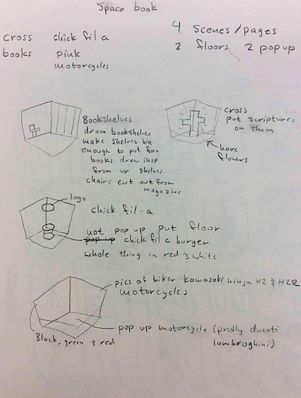 Space book
cross chick fil a
books pink
motorcycles
4 scenes/pages
2 floors 2 pop up
Bookshelves
draw bookshelves
make shelves big
enough to put for
books draw insp
from ur shelves
chairs cut out from
magazine
cross
put scriptures
on them
have
flowers
logo
chick fil-a
not pop up put floor
pop-up chick fil a burger
whole thing in red & white
pics of biker kawasaki ninja H2 & H2R
motorcycles
pop up motorcycle (prolly ducati
lambroghini)
Black, green & red